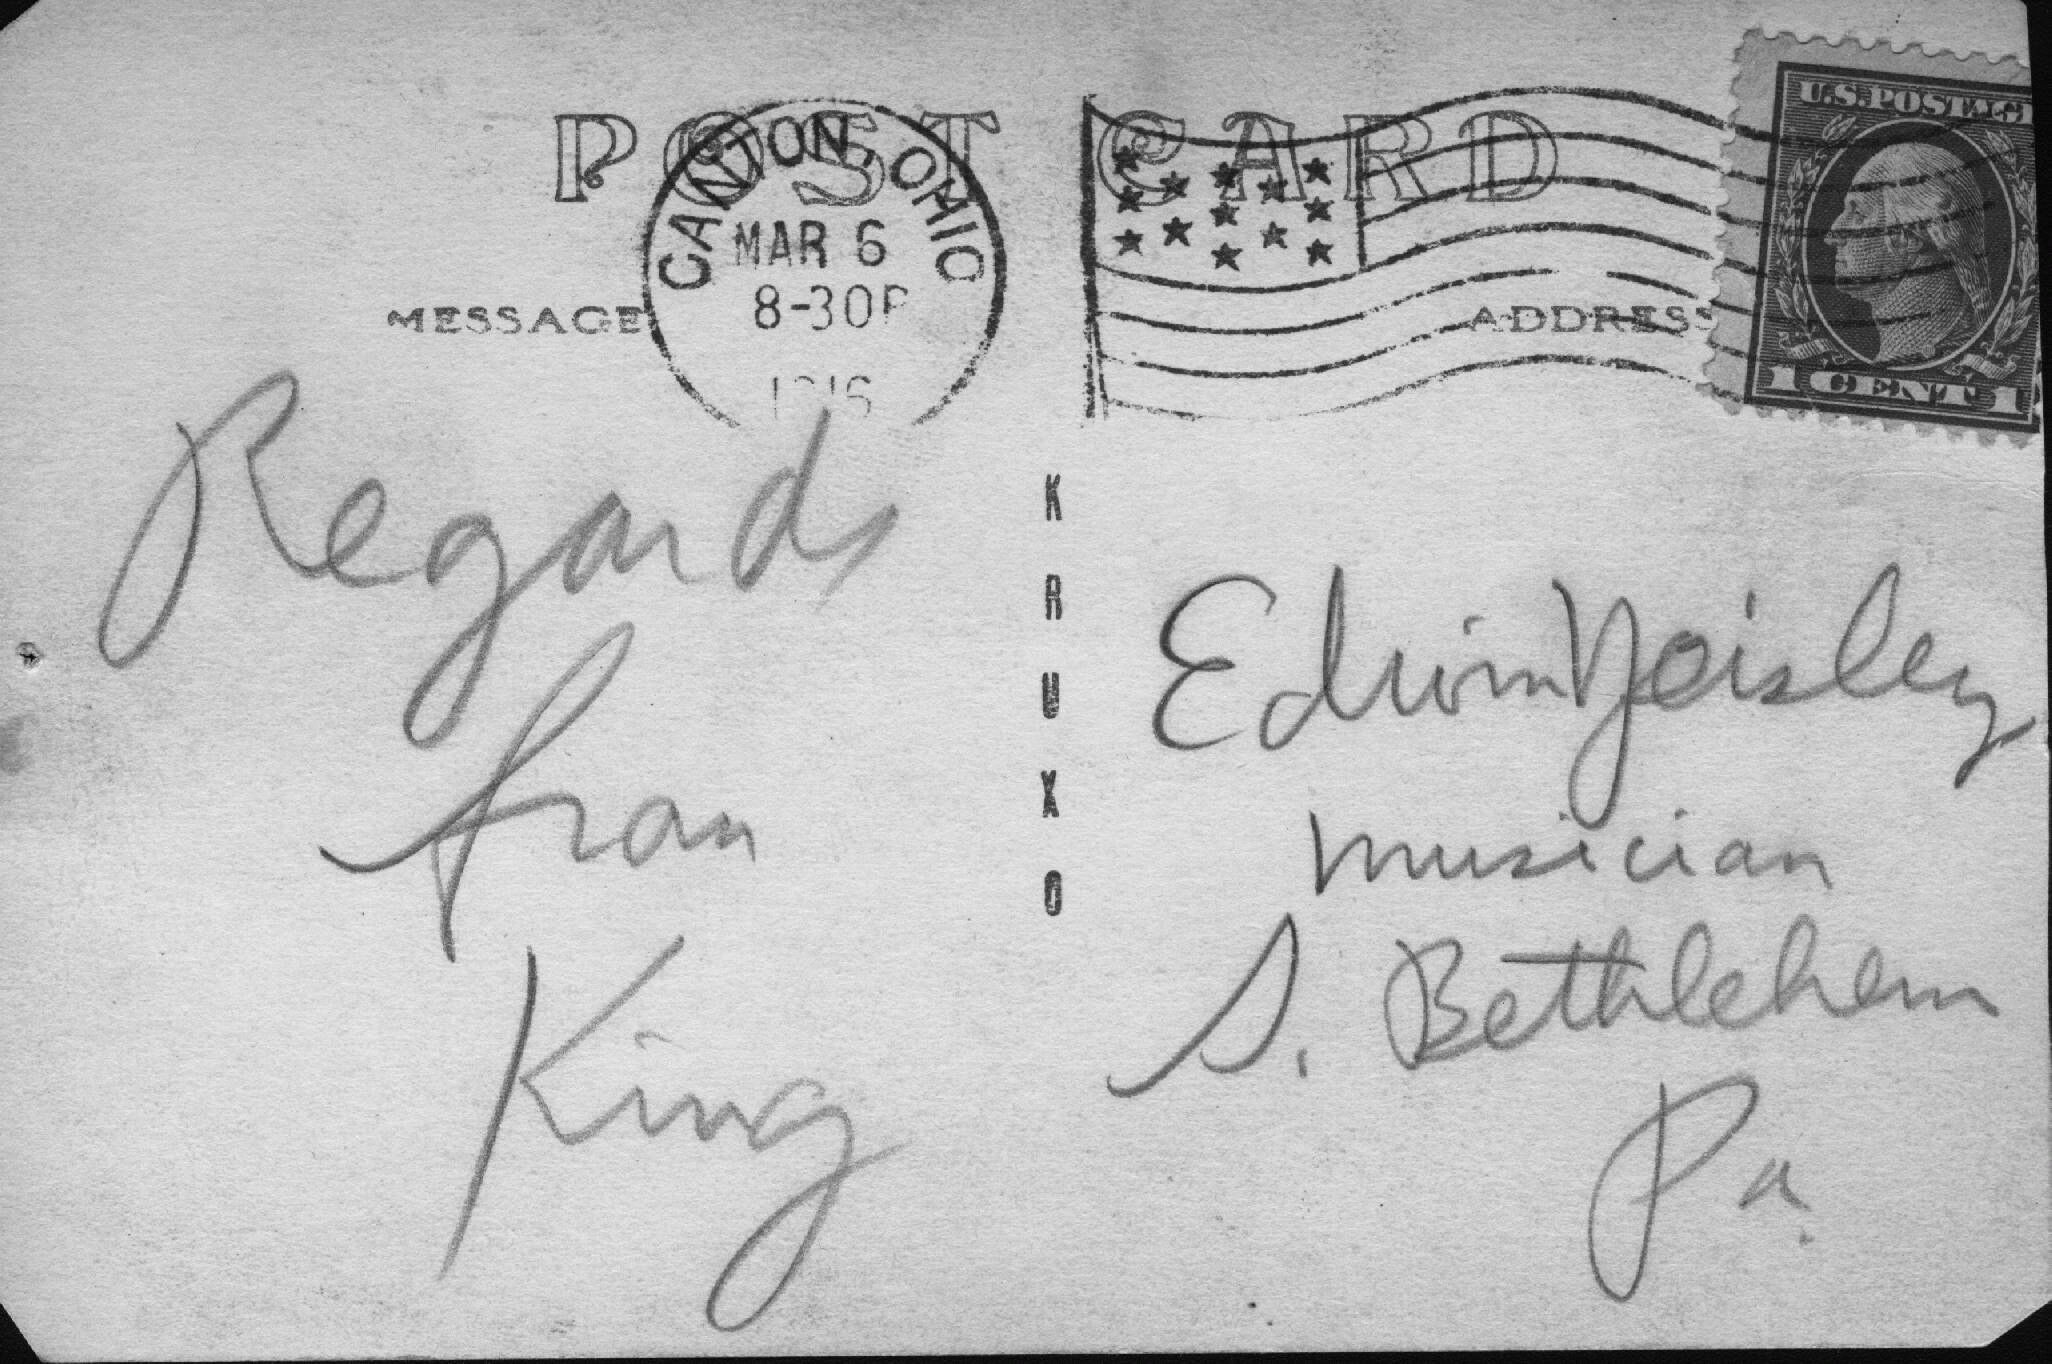 POST CARD
CANTON, OHIO
MAR 6
8-30P
MESSAGE
ADDRESS
U.S. POSTAGE
1 CENT 1
KRUXO
Regards
from
King
Edwin Yeisley
musician
S. Bethlehem
Pa.